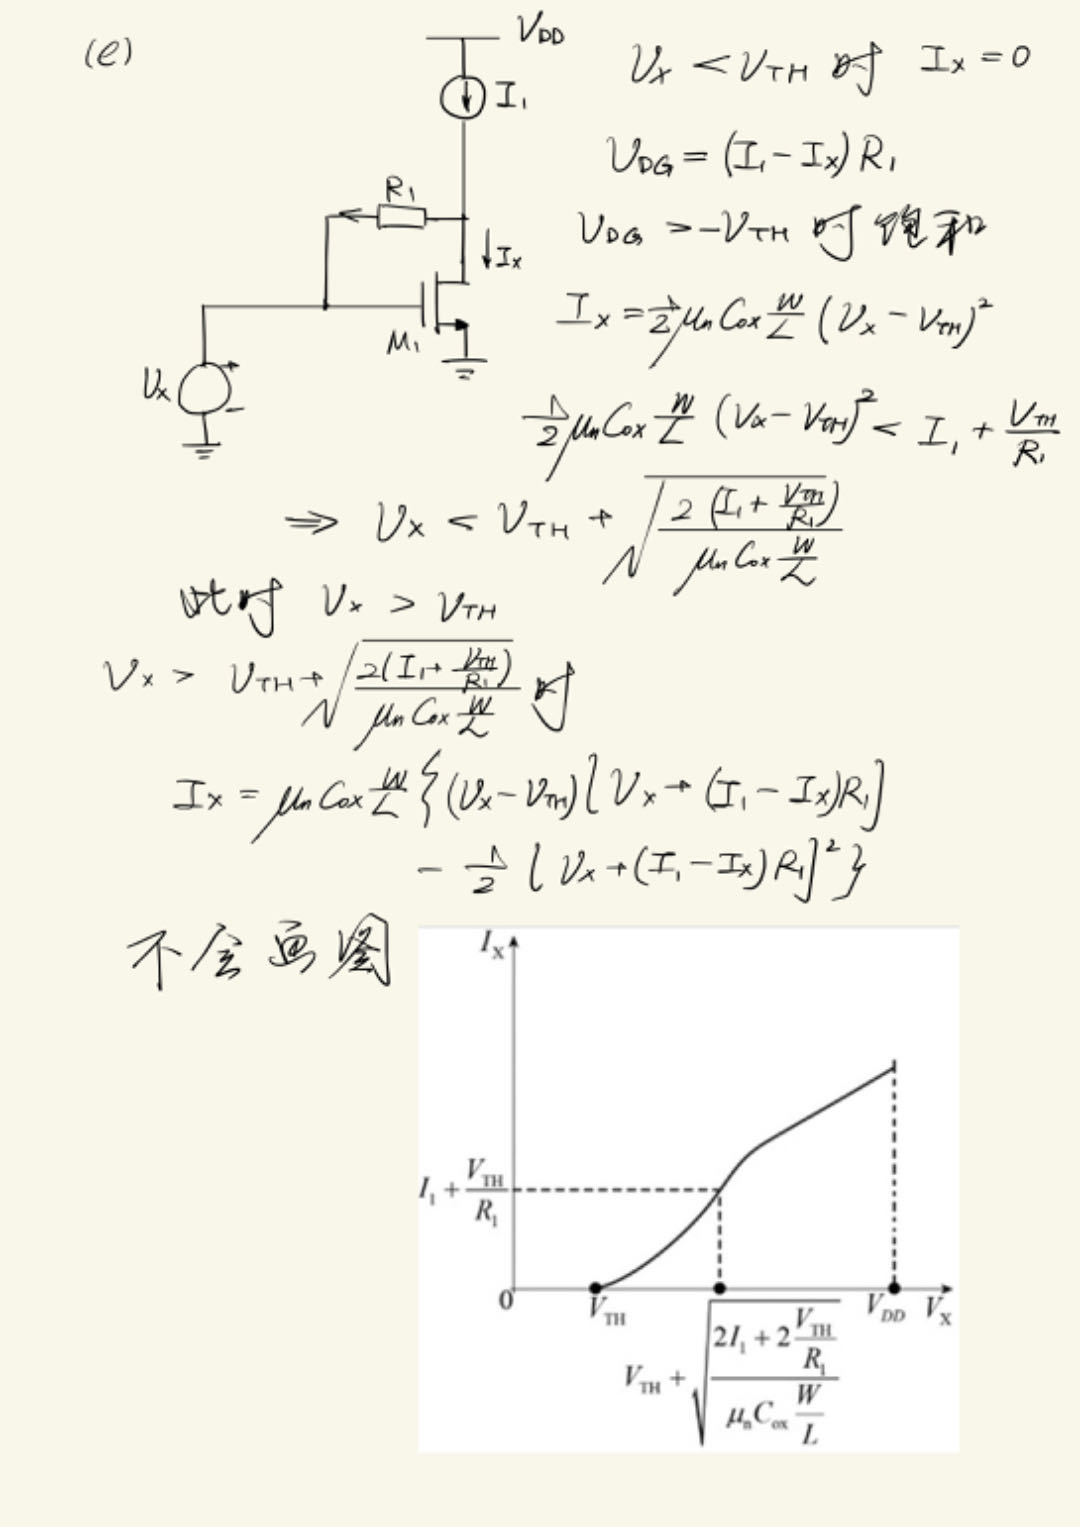 (e)
V_DD
I_1
R_1
I_X
M_1
V_X
+
−
V_X < V_TH 时 I_X = 0
V_DG = (I_1 − I_X) R_1
V_DG > −V_TH 时 饱和
I_X = 1/2 μ_n C_ox W/L (V_X − V_TH)^2
1/2 μ_n C_ox W/L (V_X − V_TH)^2 < I_1 + V_TH/R_1
⇒ V_X < V_TH + √(2(I_1 + V_TH/R_1) / (μ_n C_ox W/L))
此时 V_X > V_TH
V_X > V_TH + √(2(I_1 + V_TH/R_1) / (μ_n C_ox W/L)) 时
I_X = μ_n C_ox W/L {(V_X − V_TH)[V_X + (I_1 − I_X)R_1]
− 1/2 [V_X + (I_1 − I_X)R_1]^2}
不会画图
I_X
I_1 + V_TH/R_1
0
V_TH
V_DD
V_X
V_TH + √((2I_1 + 2 V_TH/R_1) / (μ_n C_ox W/L))